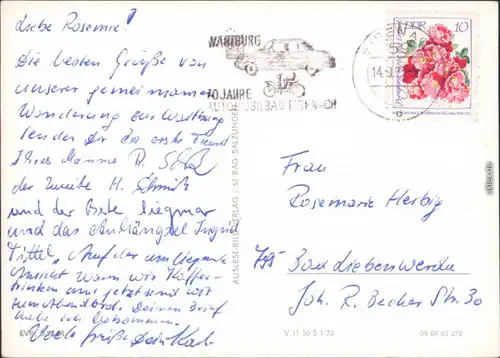 Liebe Rosemie!
Die besten Grüße von
unserer gemeinsamen
Wanderung zur Wartburg
senden Dir der erste Freund
Ihres Mannes R.
der zweite H. Schmitz
und der Beste Siegmar
und das Anhängsel Ingrid
Tittel, Auf der umliegende
Ansicht waren wir Kaffee-
trinken und jetzt sind wir
Deinen Brief
habe ich bekommen.
Viele Grüße Dein
WARTBURG
70 JAHRE
AUTOMOBILBAU EISENACH
14.
DDR 10
Frau
Rosemarie Herbig
795 Bad Liebenwerda
Joh. R. Becher Str. 30
AUSLESE-BILD-VERLAG / 62 BAD SALZUNGEN
EVP
V 11 50 S 1/73
09 09 03 072